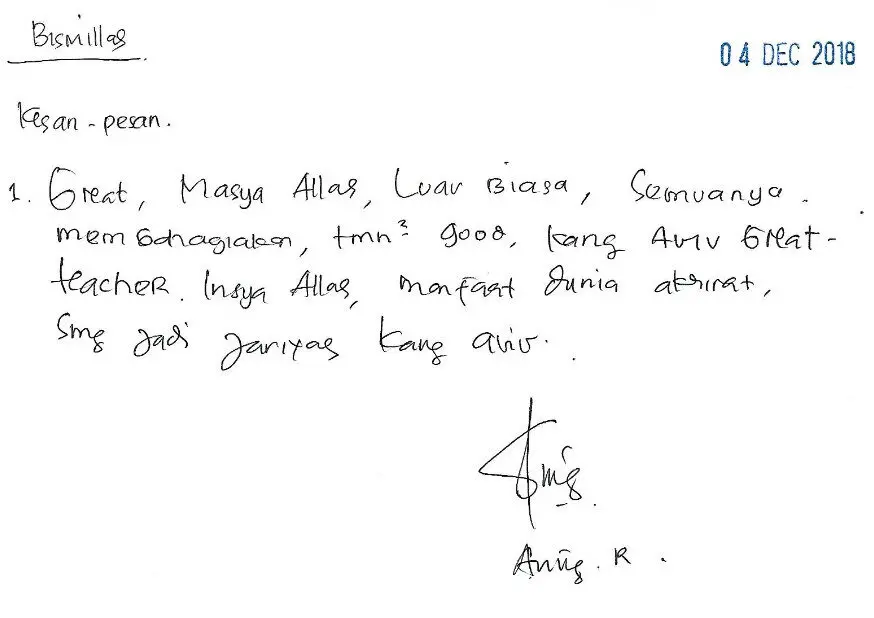 Bismillah
04 DEC 2018
Kesan - pesan.
1. Great, Masya Allah, Luar Biasa, Semuanya.
membahagiakan, tmn² good, kang Aviv Great-
teacher. Insya Allah, manfaat dunia akhirat,
Smg jadi jariyah kang aviv.